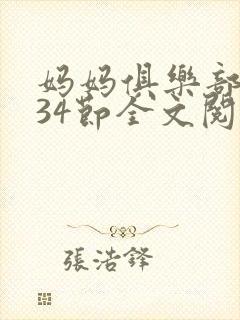 妈妈俱樂部
34節全文閱
張浩鋒